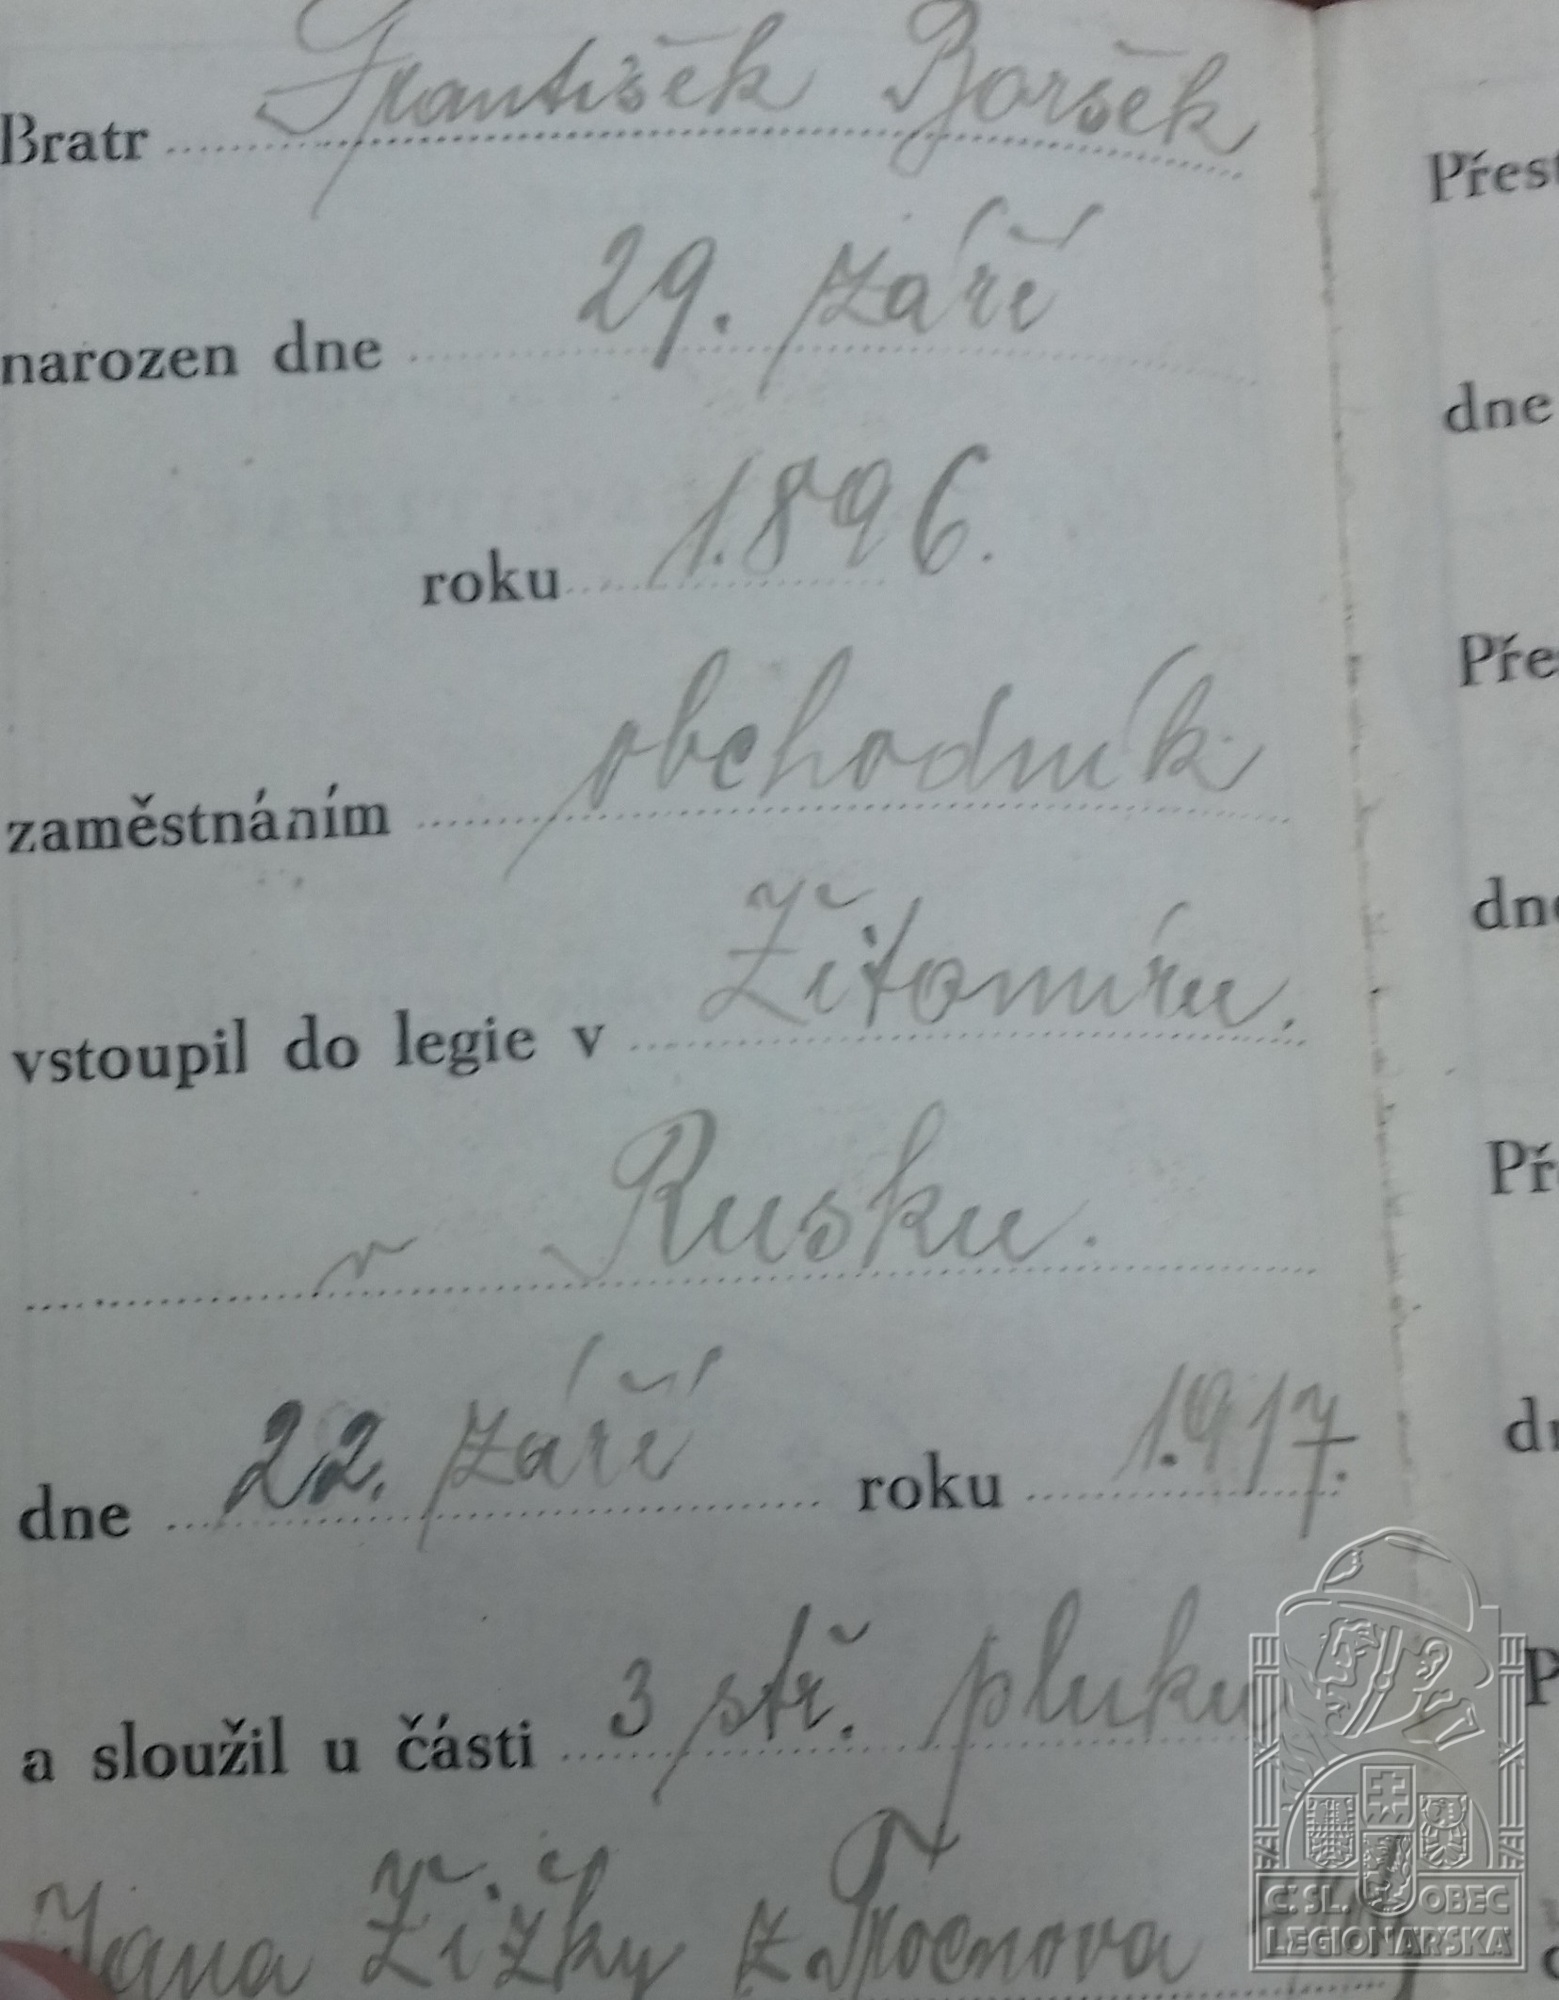 Bratr František Boršek
narozen dne 29. září
roku 1.896.
zaměstnáním obchodník
vstoupil do legie v Žitomíru.
v Rusku.
dne 22. září roku 1.917.
a sloužil u části 3 stř. pluku
Jana Žižky z Trocnova
Přest
dne
Pře
dne
Př
d
P
Č. SL. OBEC
LEGIONÁŘSKÁ